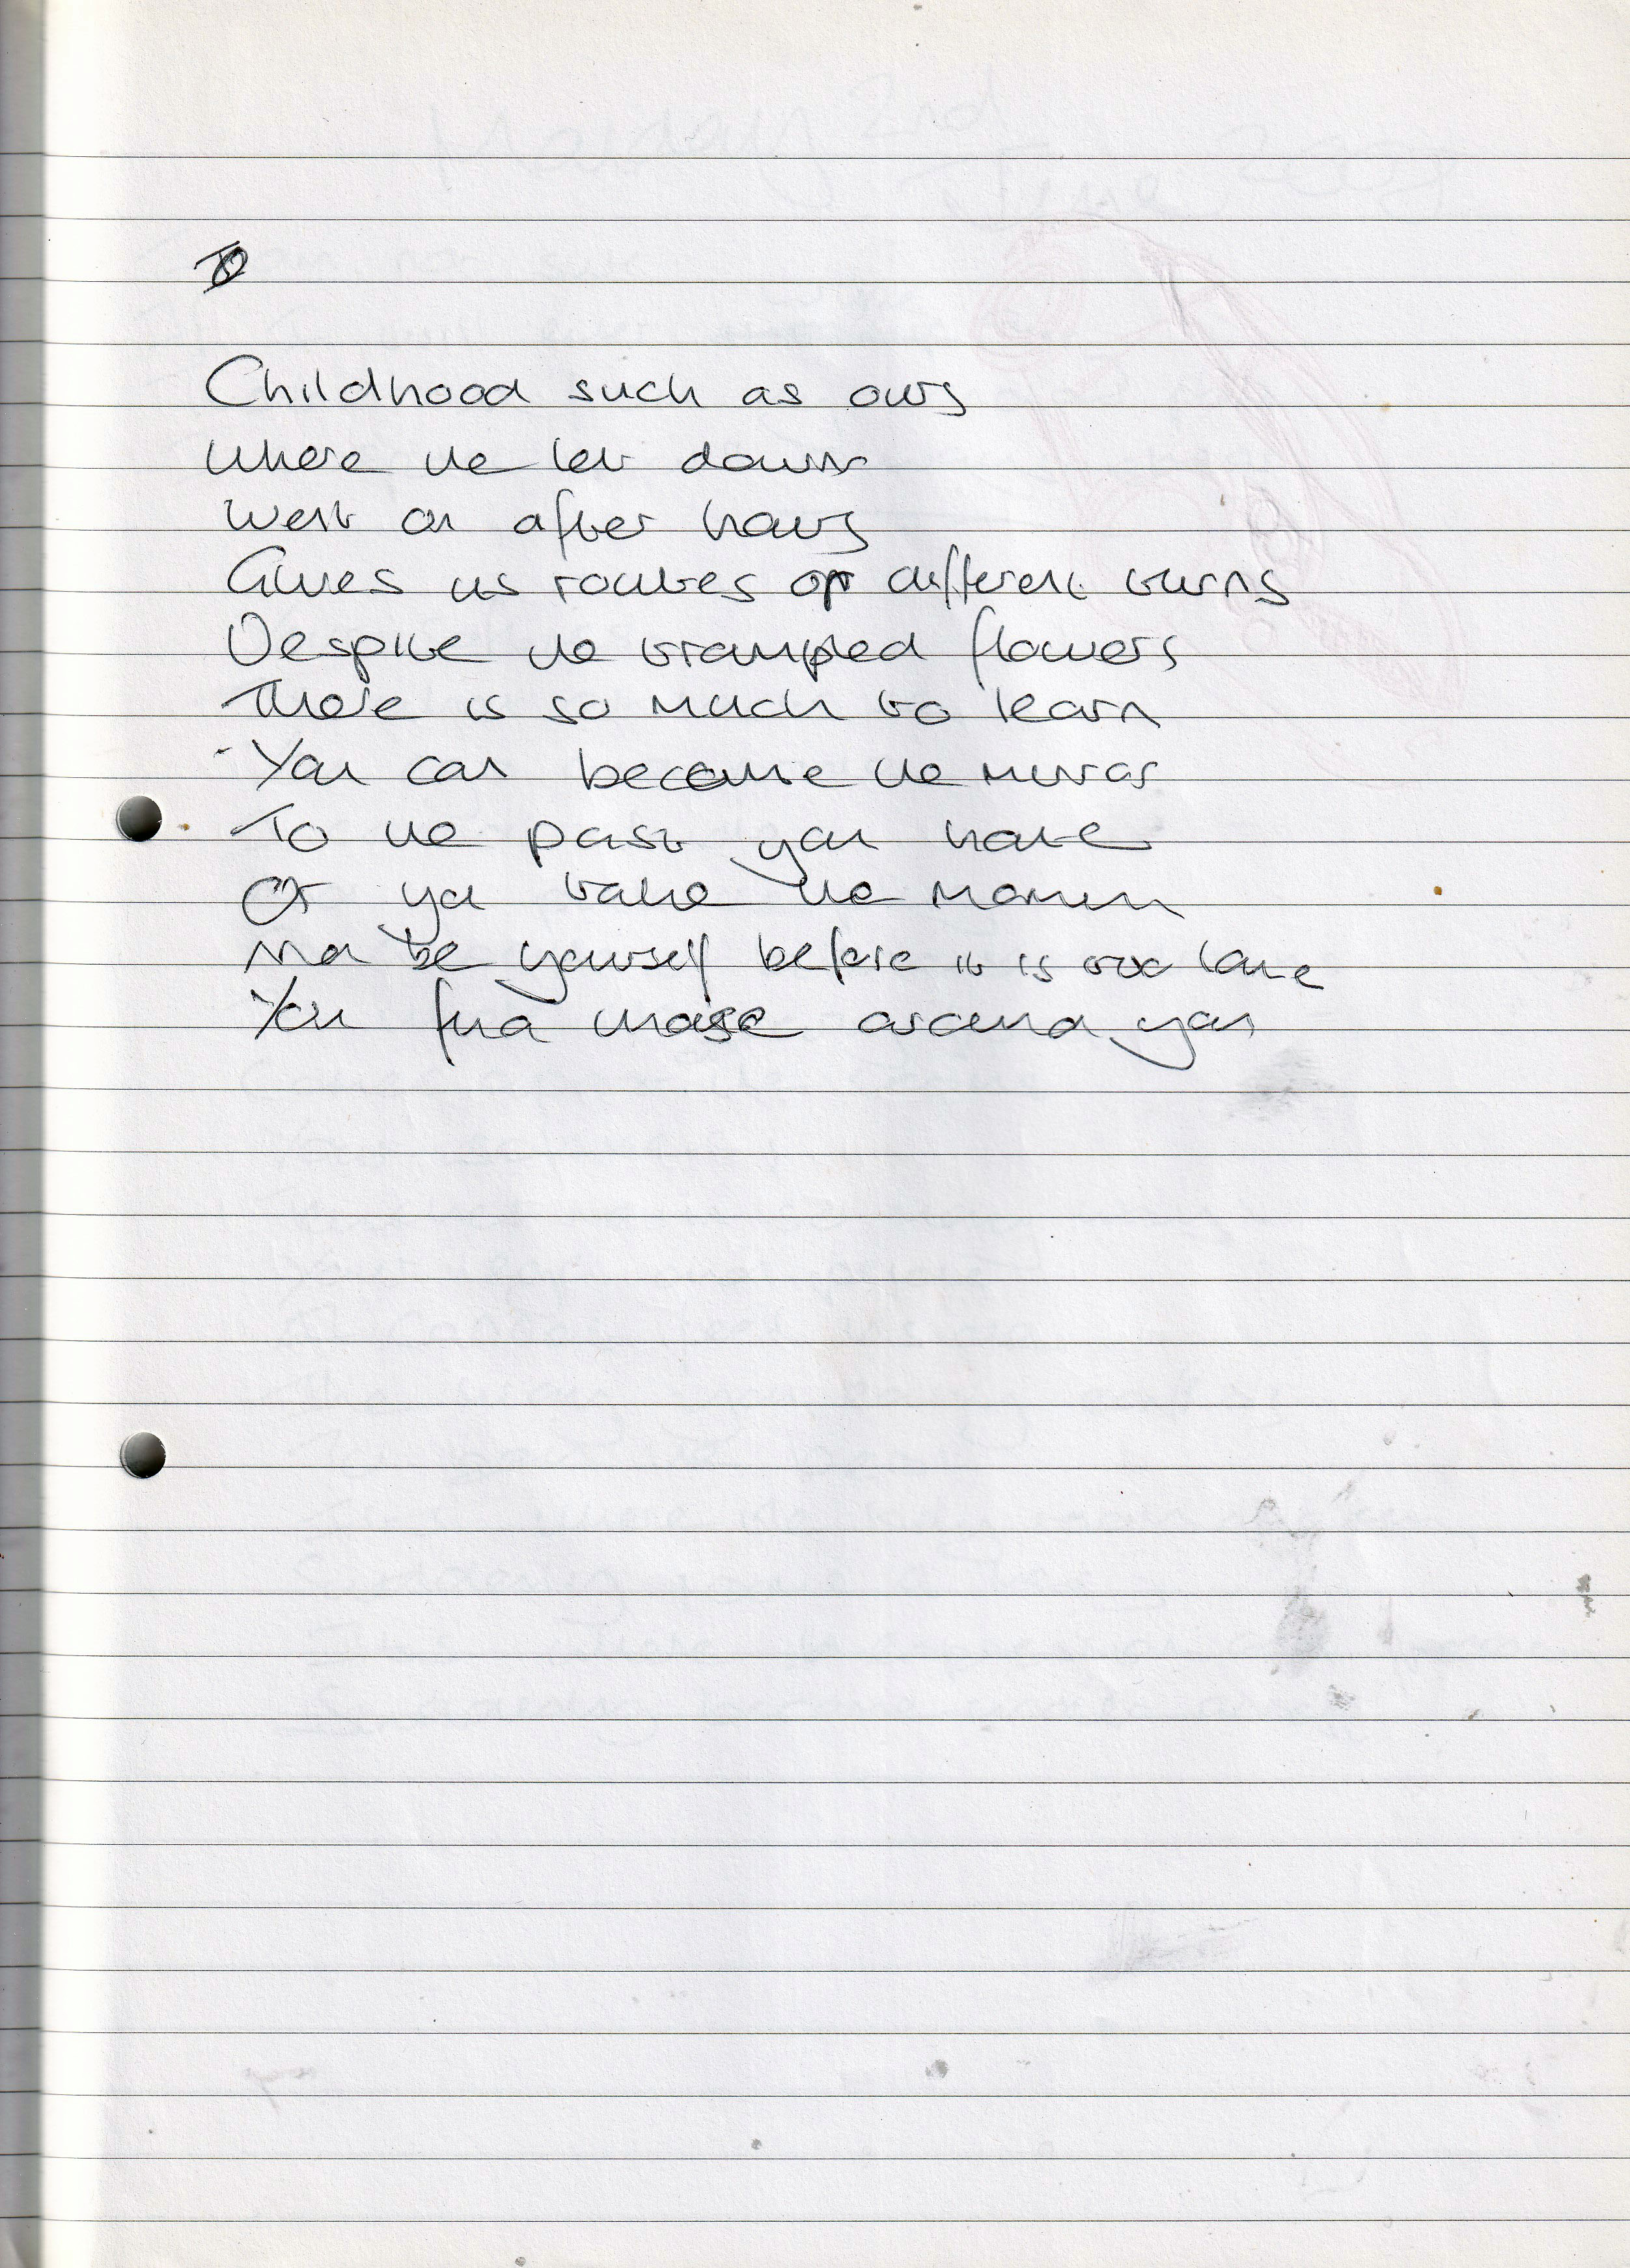 Childhood such as ours
Where the let downs
Went on after hours
Gives us routes of different turns
Despite the trampled flowers
There is so much to learn
You can become the mirror
To the past you hate
Or you take the moment
And be yourself before it is too late
You find those around you